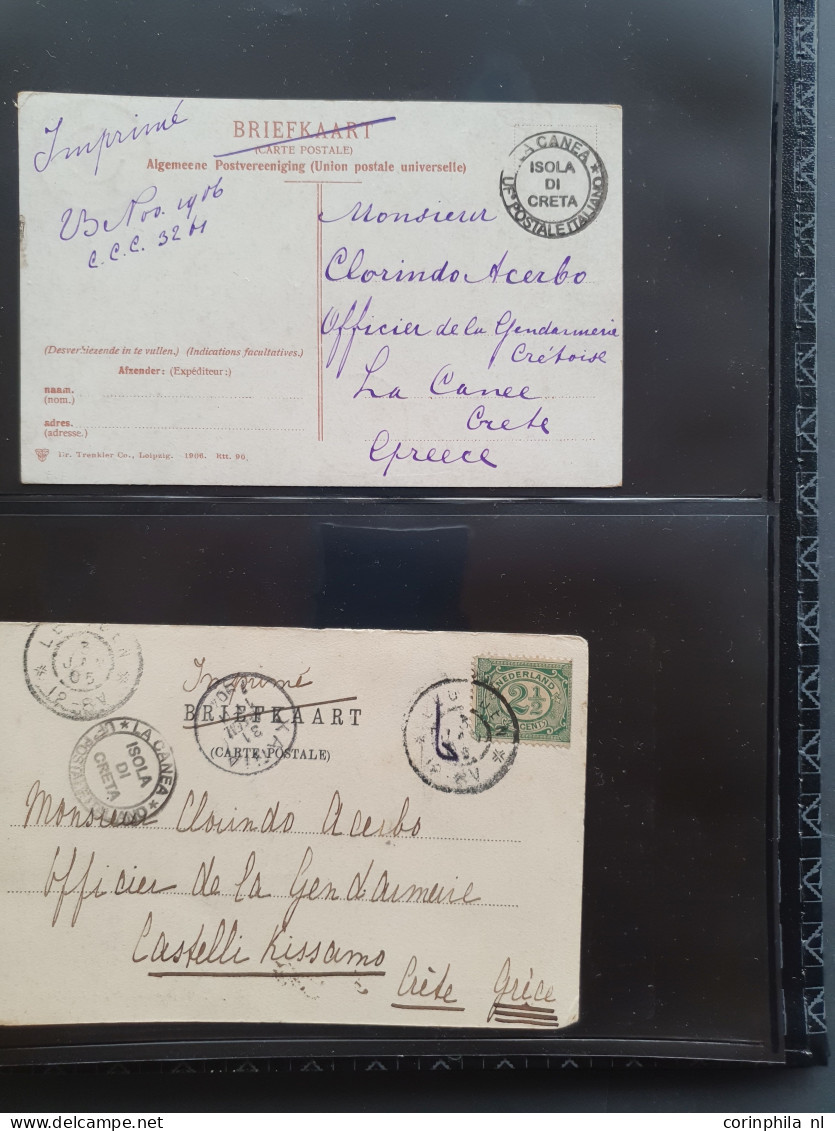 Imprimé
BRIEFKAART
(CARTE POSTALE)
Algemeene Postvereeniging (Union postale universelle)
LA CANEA
ISOLA
DI
CRETA
UFº POSTALE ITALIANO
23 Nov. 1906
C.C.C. 3201
Monsieur
Clorindo Acerbo
Officier de la Gendarmerie
Crétoise
La Canee
Crete
Greece
(Indications facultatives.)
Afzender: (Expéditeur:)
naam.
(nom.)
adres.
(adresse.)
Dr. Trenkler Co., Leipzig. 1906.
Imprimé
BRIEFKAART
(CARTE POSTALE)
NEDERLAND
2½
CENT
LA CANEA
ISOLA
DI
CRETA
Monsieur Clorindo Acerbo
Officier de la Gendarmerie
Castelli Kissamo
Crète Grèce
corinphila nl